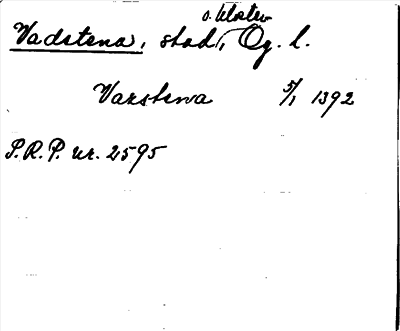 Vadstena, stad, o. kloster Ög. l.
Vazstena 5/1 1392
S.R.P. nr. 2595